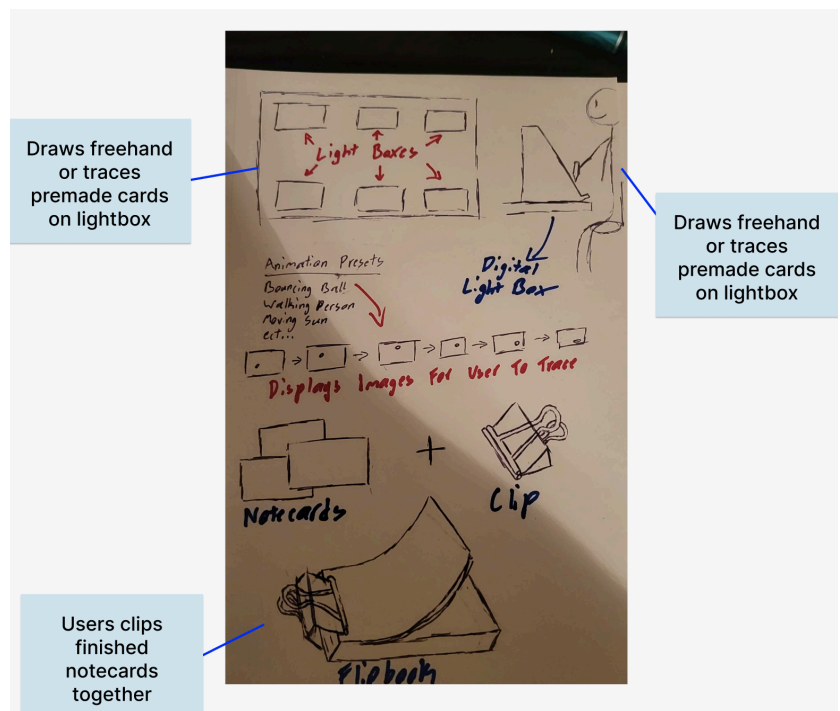 Draws freehand
or traces
premade cards
on lightbox
Light Boxes
Draws freehand
or traces
premade cards
on lightbox
Digital
Light Box
Animation Presets
Bouncing Ball
Walking Person
Moving Sun
ect...
Displays Images For User To Trace
Notecards
+
Clip
Users clips
finished
notecards
together
Flipbook